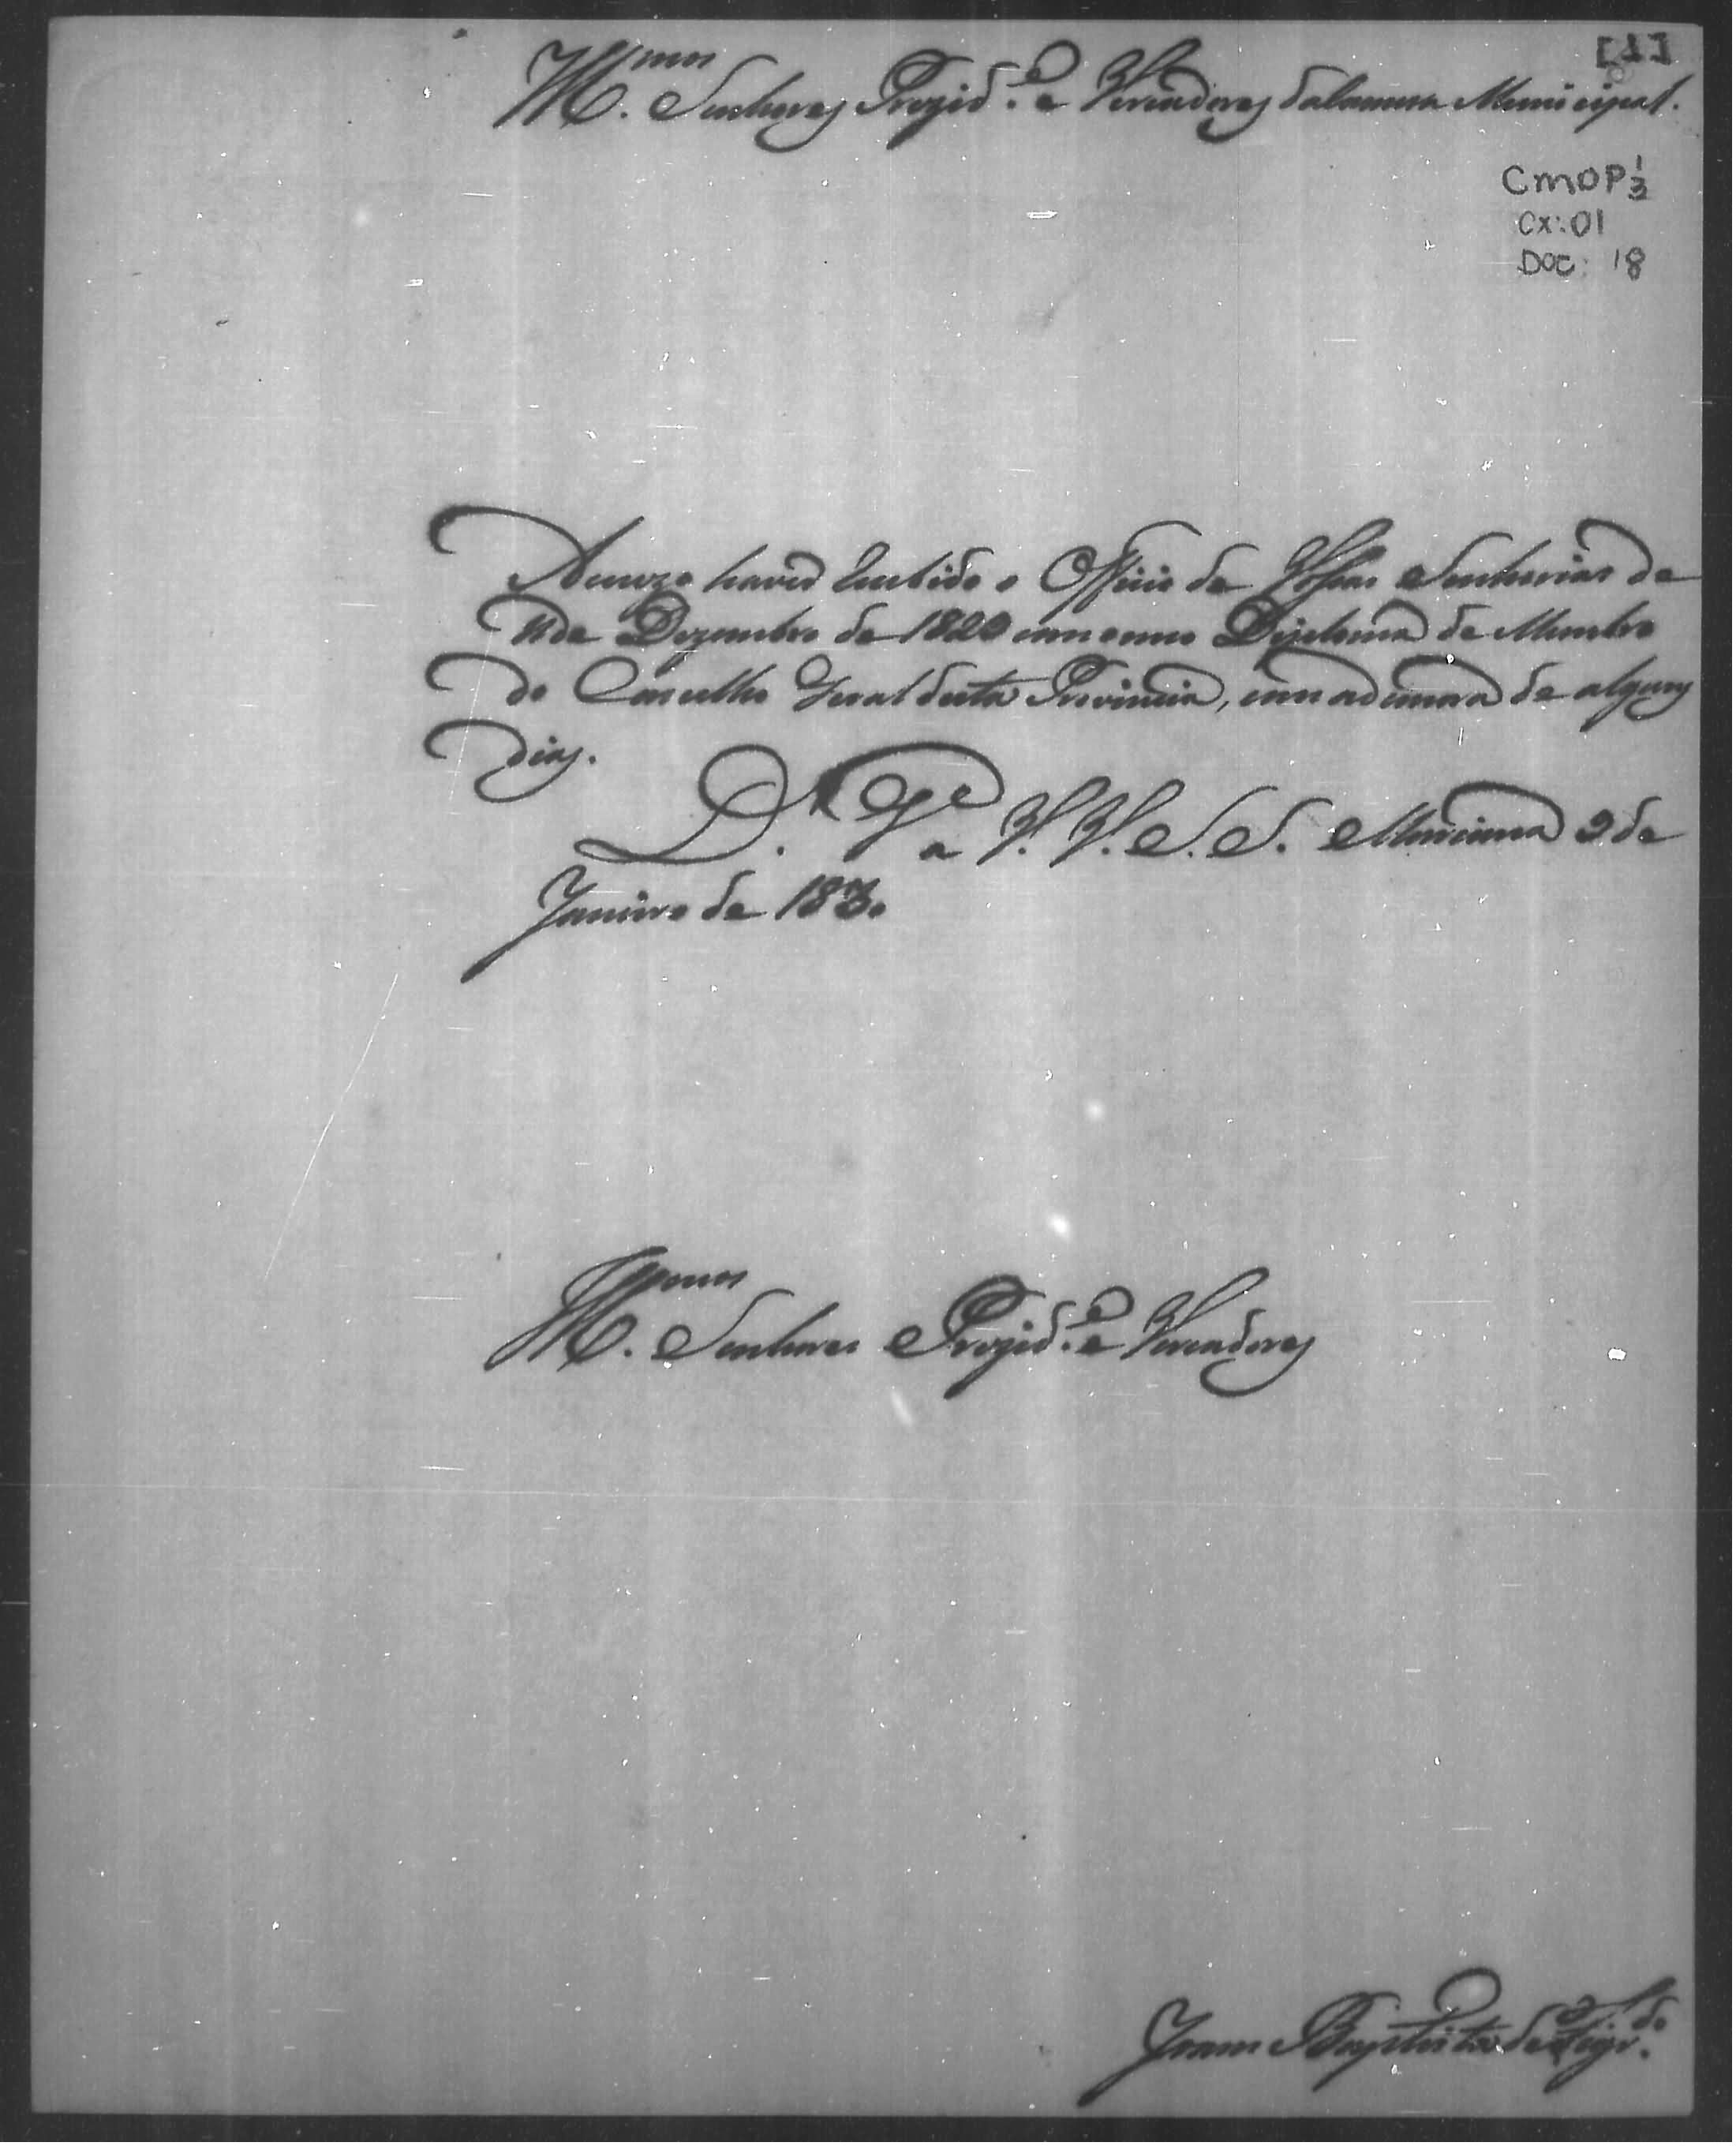 [1]
Ill.mos Senhores Prezid.e e Vereadores da Camara Municipal.
CMOP 1/3
CX: 01
DOC: 18
Acuzo haver recebido o Officio de Vossas Senhorias de
11 de Dezembro de 1829 com o meu Diploma de Membro
do Concelho Geral desta Provincia, com a demora de alguns
dias.
D.s G.e a V. V. S. S. Marianna 2 de
Janeiro de 1830
Ill.mos Senhores Prezid.e e Vereadores
Joam Baptista de Figr.do